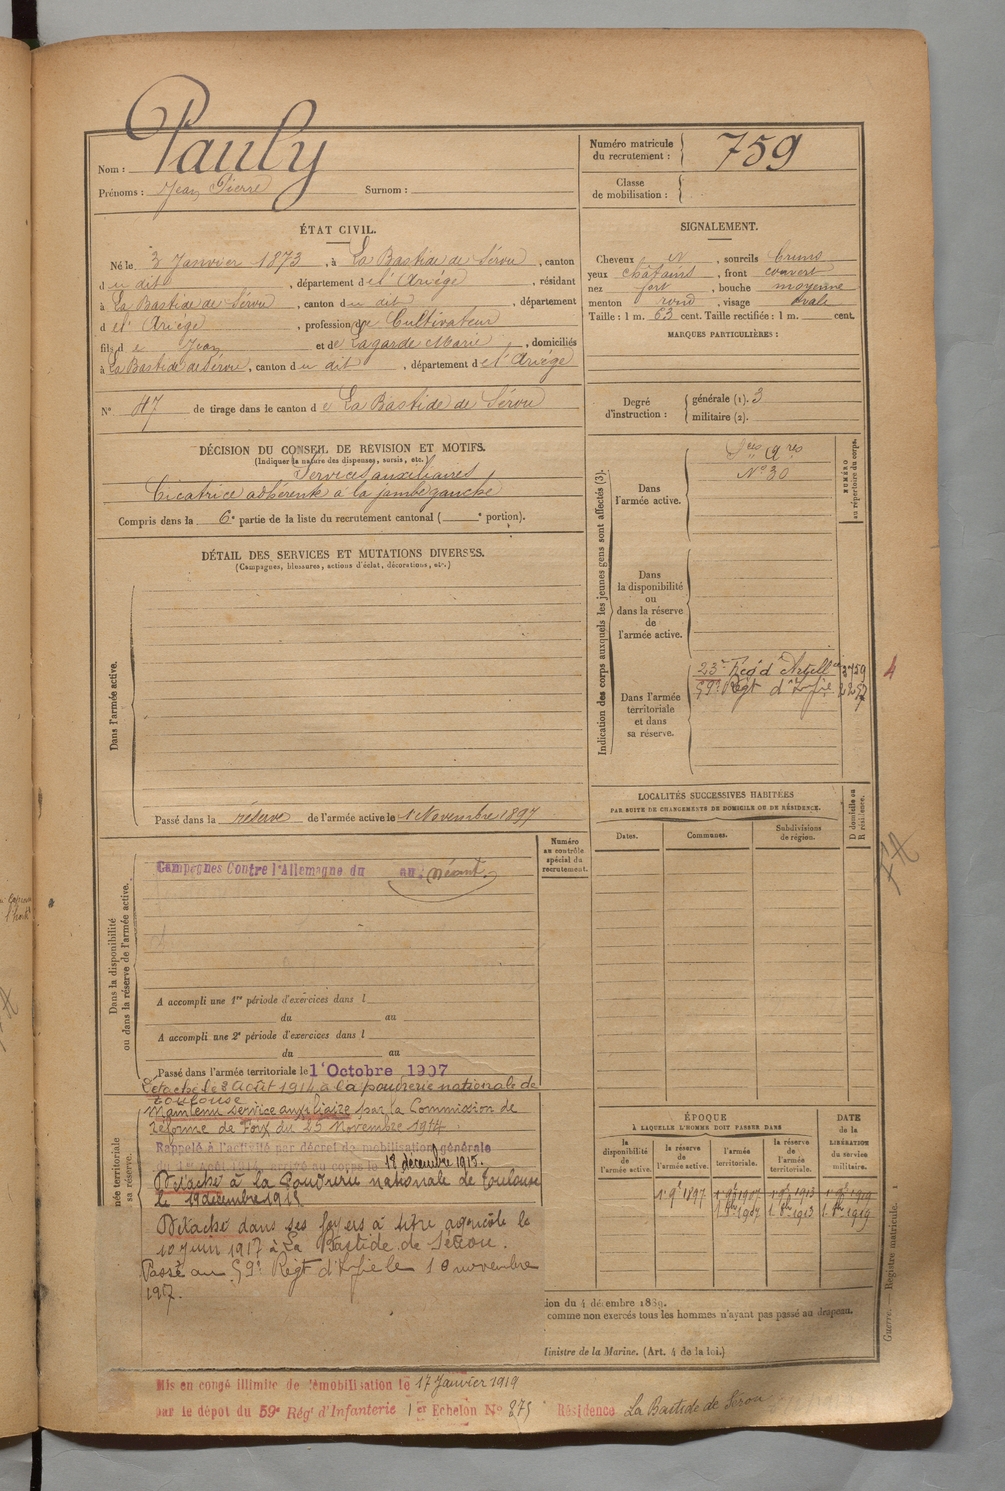 Nom : Pauly
Prénoms : Jean Pierre Surnom :
Numéro matricule
du recrutement : 759
Classe
de mobilisation :
ÉTAT CIVIL.
Né le 3 Janvier 1873, à La Bastide de Sérou, canton
du dit, département de l'Ariége, résidant
à La Bastide de Sérou, canton du dit, département
de l'Ariége, profession de Cultivateur
fils de Jean et de Lagarde Marie, domiciliés
à La Bastide de Sérou, canton du dit, département de l'Ariége
N° 47 de tirage dans le canton de La Bastide de Sérou
SIGNALEMENT.
Cheveux et, sourcils bruns
yeux chatains, front couvert
nez fort, bouche moyenne
menton rond, visage ovale
Taille : 1 m. 63 cent. Taille rectifiée : 1 m. cent.
MARQUES PARTICULIÈRES :
Degré
d'instruction :
générale (1). 3
militaire (2).
DÉCISION DU CONSEIL DE REVISION ET MOTIFS.
(Indiquer la nature des dispenses, sursis, etc.)
Services auxiliaires
Cicatrice adhérente à la jambe gauche
Compris dans la 6e partie de la liste du recrutement cantonal ( e portion).
DÉTAIL DES SERVICES ET MUTATIONS DIVERSES.
(Campagnes, blessures, actions d'éclat, décorations, etc.)
Dans l'armée active.
Passé dans la réserve de l'armée active le 1 Novembre 1897
Indication des corps auxquels les jeunes gens sont affectés (3).
NUMÉRO
au répertoire du corps.
Dans
l'armée active.
Sces Ares
N° 30
Dans
la disponibilité
ou
dans la réserve
de
l'armée active.
Dans l'armée
territoriale
et dans
sa réserve.
23e Reg d'Artillie 3759
59e Régt d'Infie 2257
4
LOCALITÉS SUCCESSIVES HABITÉES
PAR SUITE DE CHANGEMENTS DE DOMICILE OU DE RÉSIDENCE.
D domicile ou
R résidence.
Dates. Communes. Subdivisions
de région.
Numéro
au contrôle
spécial du
recrutement.
Dans la disponibilité
ou dans la réserve de l'armée active.
Campagnes Contre l'Allemagne du au : néant.
A accompli une 1re période d'exercices dans l
du au
A accompli une 2e période d'exercices dans l
du au
Passé dans l'armée territoriale le 1er Octobre 1907
Détaché le 8 Août 1914 à la poudrerie nationale de
toulouse
Maintenu service auxiliaire par la Commission de
réforme de Foix du 25 Novembre 1914.
Rappelé à l'activité par décret de mobilisation générale
du 1er Août 1914, arrivé au corps le 18 décembre 1915.
Détaché à la Poudrerie nationale de Toulouse
le 19 décembre 1915
Détaché dans ses foyers à titre agricole le
10 juin 1917 à La Bastide de Sérou.
Passé au 59e Régt d'Infie le 10 novembre
1917.
ÉPOQUE
À LAQUELLE L'HOMME DOIT PASSER DANS
la
disponibilité
de
l'armée active.
la
réserve
de
l'armée active.
l'armée
territoriale.
la réserve
de
l'armée
territoriale.
DATE
de la
LIBÉRATION
du service
militaire.
1 9bre 1897 1 9bre 1907 1 9bre 1913 1 9bre 1919
1 8bre 1907 1 8bre 1913 1 8bre 1919
ion du 4 décembre 1889.
comme non exercés tous les hommes n'ayant pas passé au drapeau.
Ministre de la Marine. (Art. 4 de la loi.)
Guerre. — Registre matricule.
Mis en congé illimité de démobilisation le 17 Janvier 1919
par le dépôt du 59e Régt d'Infanterie 1er Echelon N° 875 Résidence La Bastide de Sérou